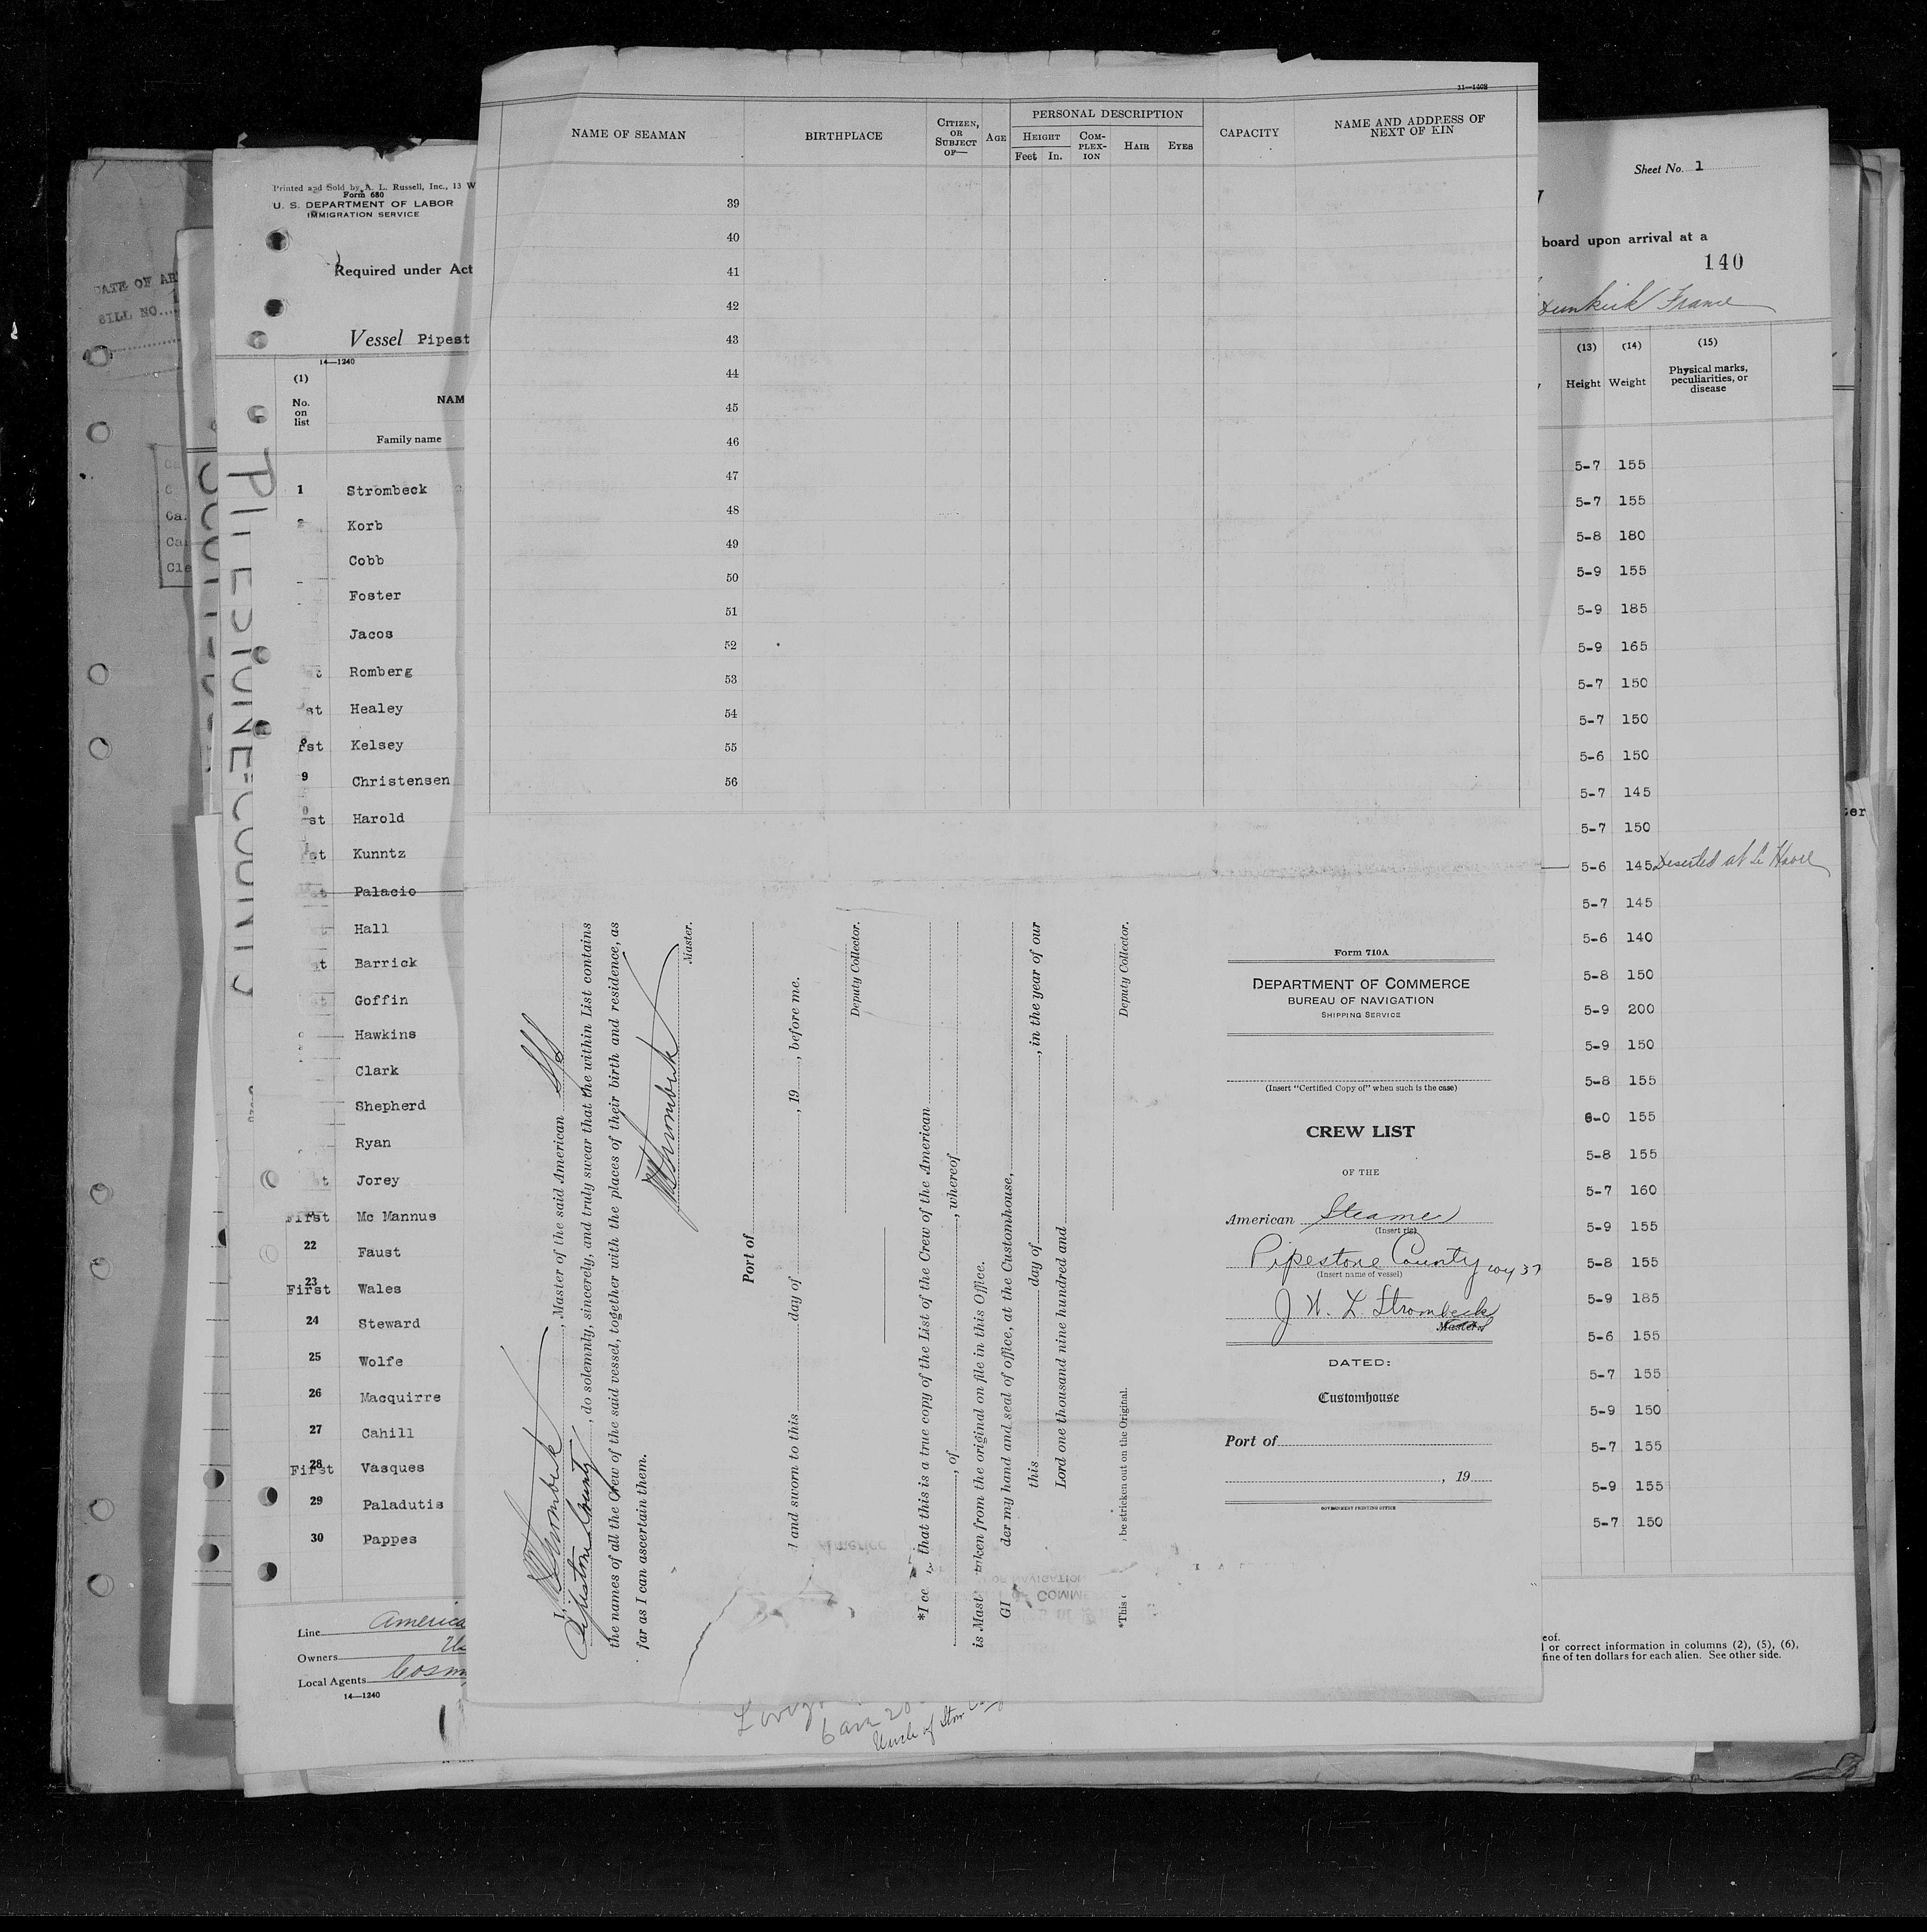 11—1402
NAME OF SEAMAN
BIRTHPLACE
CITIZEN, OR SUBJECT OF—
AGE
PERSONAL DESCRIPTION
HEIGHT
Feet In.
COM-PLEX-ION
HAIR
EYES
CAPACITY
NAME AND ADDRESS OF NEXT OF KIN
39
40
41
42
43
44
45
46
47
48
49
50
51
52
53
54
55
56
I, , Master of the said American S/S
Pipestone County, do solemnly, sincerely, and truly swear that the within List contains
the names of all the Crew of the said vessel, together with the places of their birth and residence, as
far as I can ascertain them.
Strombeck
Master.
Port of
d and sworn to this day of , 19 , before me.
Deputy Collector.
*I ce that this is a true copy of the List of the Crew of the American
, of , whereof
is Mast taken from the original on file in this Office.
GI der my hand and seal of office, at the Customhouse,
this day of , in the year of our
Lord one thousand nine hundred and
Deputy Collector.
*This be stricken out on the Original.
Form 710A
DEPARTMENT OF COMMERCE
BUREAU OF NAVIGATION
SHIPPING SERVICE
(Insert "Certified Copy of" when such is the case)
CREW LIST
OF THE
American Steamer
(Insert rig)
Pipestone County
(Insert name of vessel)
J W. L. Strombeck
Master
DATED:
Customhouse
Port of
, 19
GOVERNMENT PRINTING OFFICE
Printed and Sold by A. L. Russell, Inc., 13 W
Form 680
U. S. DEPARTMENT OF LABOR
IMMIGRATION SERVICE
Required under Act
Vessel Pipest
14—1240
(1)
No. on list
NAM
Family name
1 Strombeck
2 Korb
Cobb
Foster
Jacos
Romberg
st Healey
st Kelsey
9 Christensen
st Harold
st Kunntz
st Palacio
Hall
t Barrick
st Goffin
Hawkins
Clark
Shepherd
Ryan
t Jorey
First Mc Mannus
22 Faust
23 First Wales
24 Steward
25 Wolfe
26 Macquirre
27 Cahill
28 First Vasques
29 Paladutis
30 Pappes
Line America
Owners
Local Agents Cosm
14—1240
PIPESTONE COUNTY
DATE OF AR
BILL NO.
Sheet No. 1
board upon arrival at a
140
Dunkirk France
(13) (14) (15)
Height Weight Physical marks, peculiarities, or disease
5-7 155
5-7 155
5-8 180
5-9 155
5-9 185
5-9 165
5-7 150
5-7 150
5-6 150
5-7 145
5-7 150
5-6 145 Deserted at Le Havre
5-7 145
5-6 140
5-8 150
5-9 200
5-9 150
5-8 155
6-0 155
5-8 155
5-7 160
5-9 155
5-8 155
5-9 185
5-6 155
5-7 155
5-9 150
5-7 155
5-9 155
5-7 150
eof.
l or correct information in columns (2), (5), (6),
fine of ten dollars for each alien. See other side.